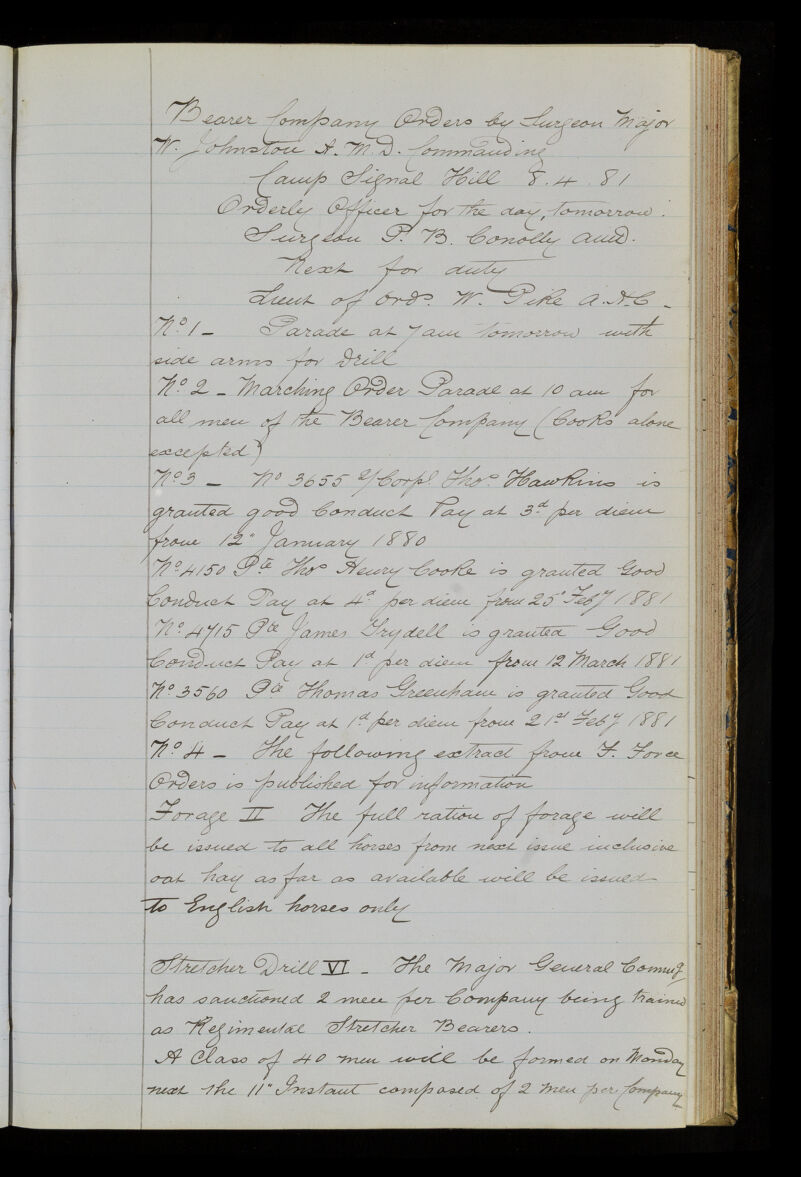 Bearer Company Orders by Surgeon Major
W. Johnston A. M. D. Commanding
Camp Signal Hill 8. 4. 81
Orderly Officer for the day, tomorrow.
Surgeon P. B. Conolly AMD.
Next for duty
Lieut of Ords. W. Pike A.H.C -
No. 1 - Parade at 7 am tomorrow with
side arms for Drill
No. 2 - Marching Order Parade at 10 am for
all men of the Bearer Company (Cooks alone
excepted)
No. 3 - No 3655 2/Corpl Thos. Hawkins is
granted good Conduct Pay at 3d per diem
from 12" January 1880
No. 4150 Pte Thos Henry Cooke is granted Good
Conduct Pay at 4d per diem from 25" Feby 1881
No. 4715 Pte James Trydell is granted Good
Conduct Pay at 1d per diem from 12 March 1881
No. 3560 Pte Thomas Greenham is granted Good
Conduct Pay at 1d per diem from 21st Feby 1881
No. 4 - The following extract from F. Force
Orders is published for information
Forage II The full ration of forage will
be issued to all horses from next issue inclusive
oat hay as far as available will be issued
to English horses only
Stretcher Drill VI - The Major General Commg
has sanctioned 2 men per Company being trained
as Regimental Stretcher Bearers.
A Class of 40 men will be formed on Monday
next the 11" Instant composed of 2 men per Company